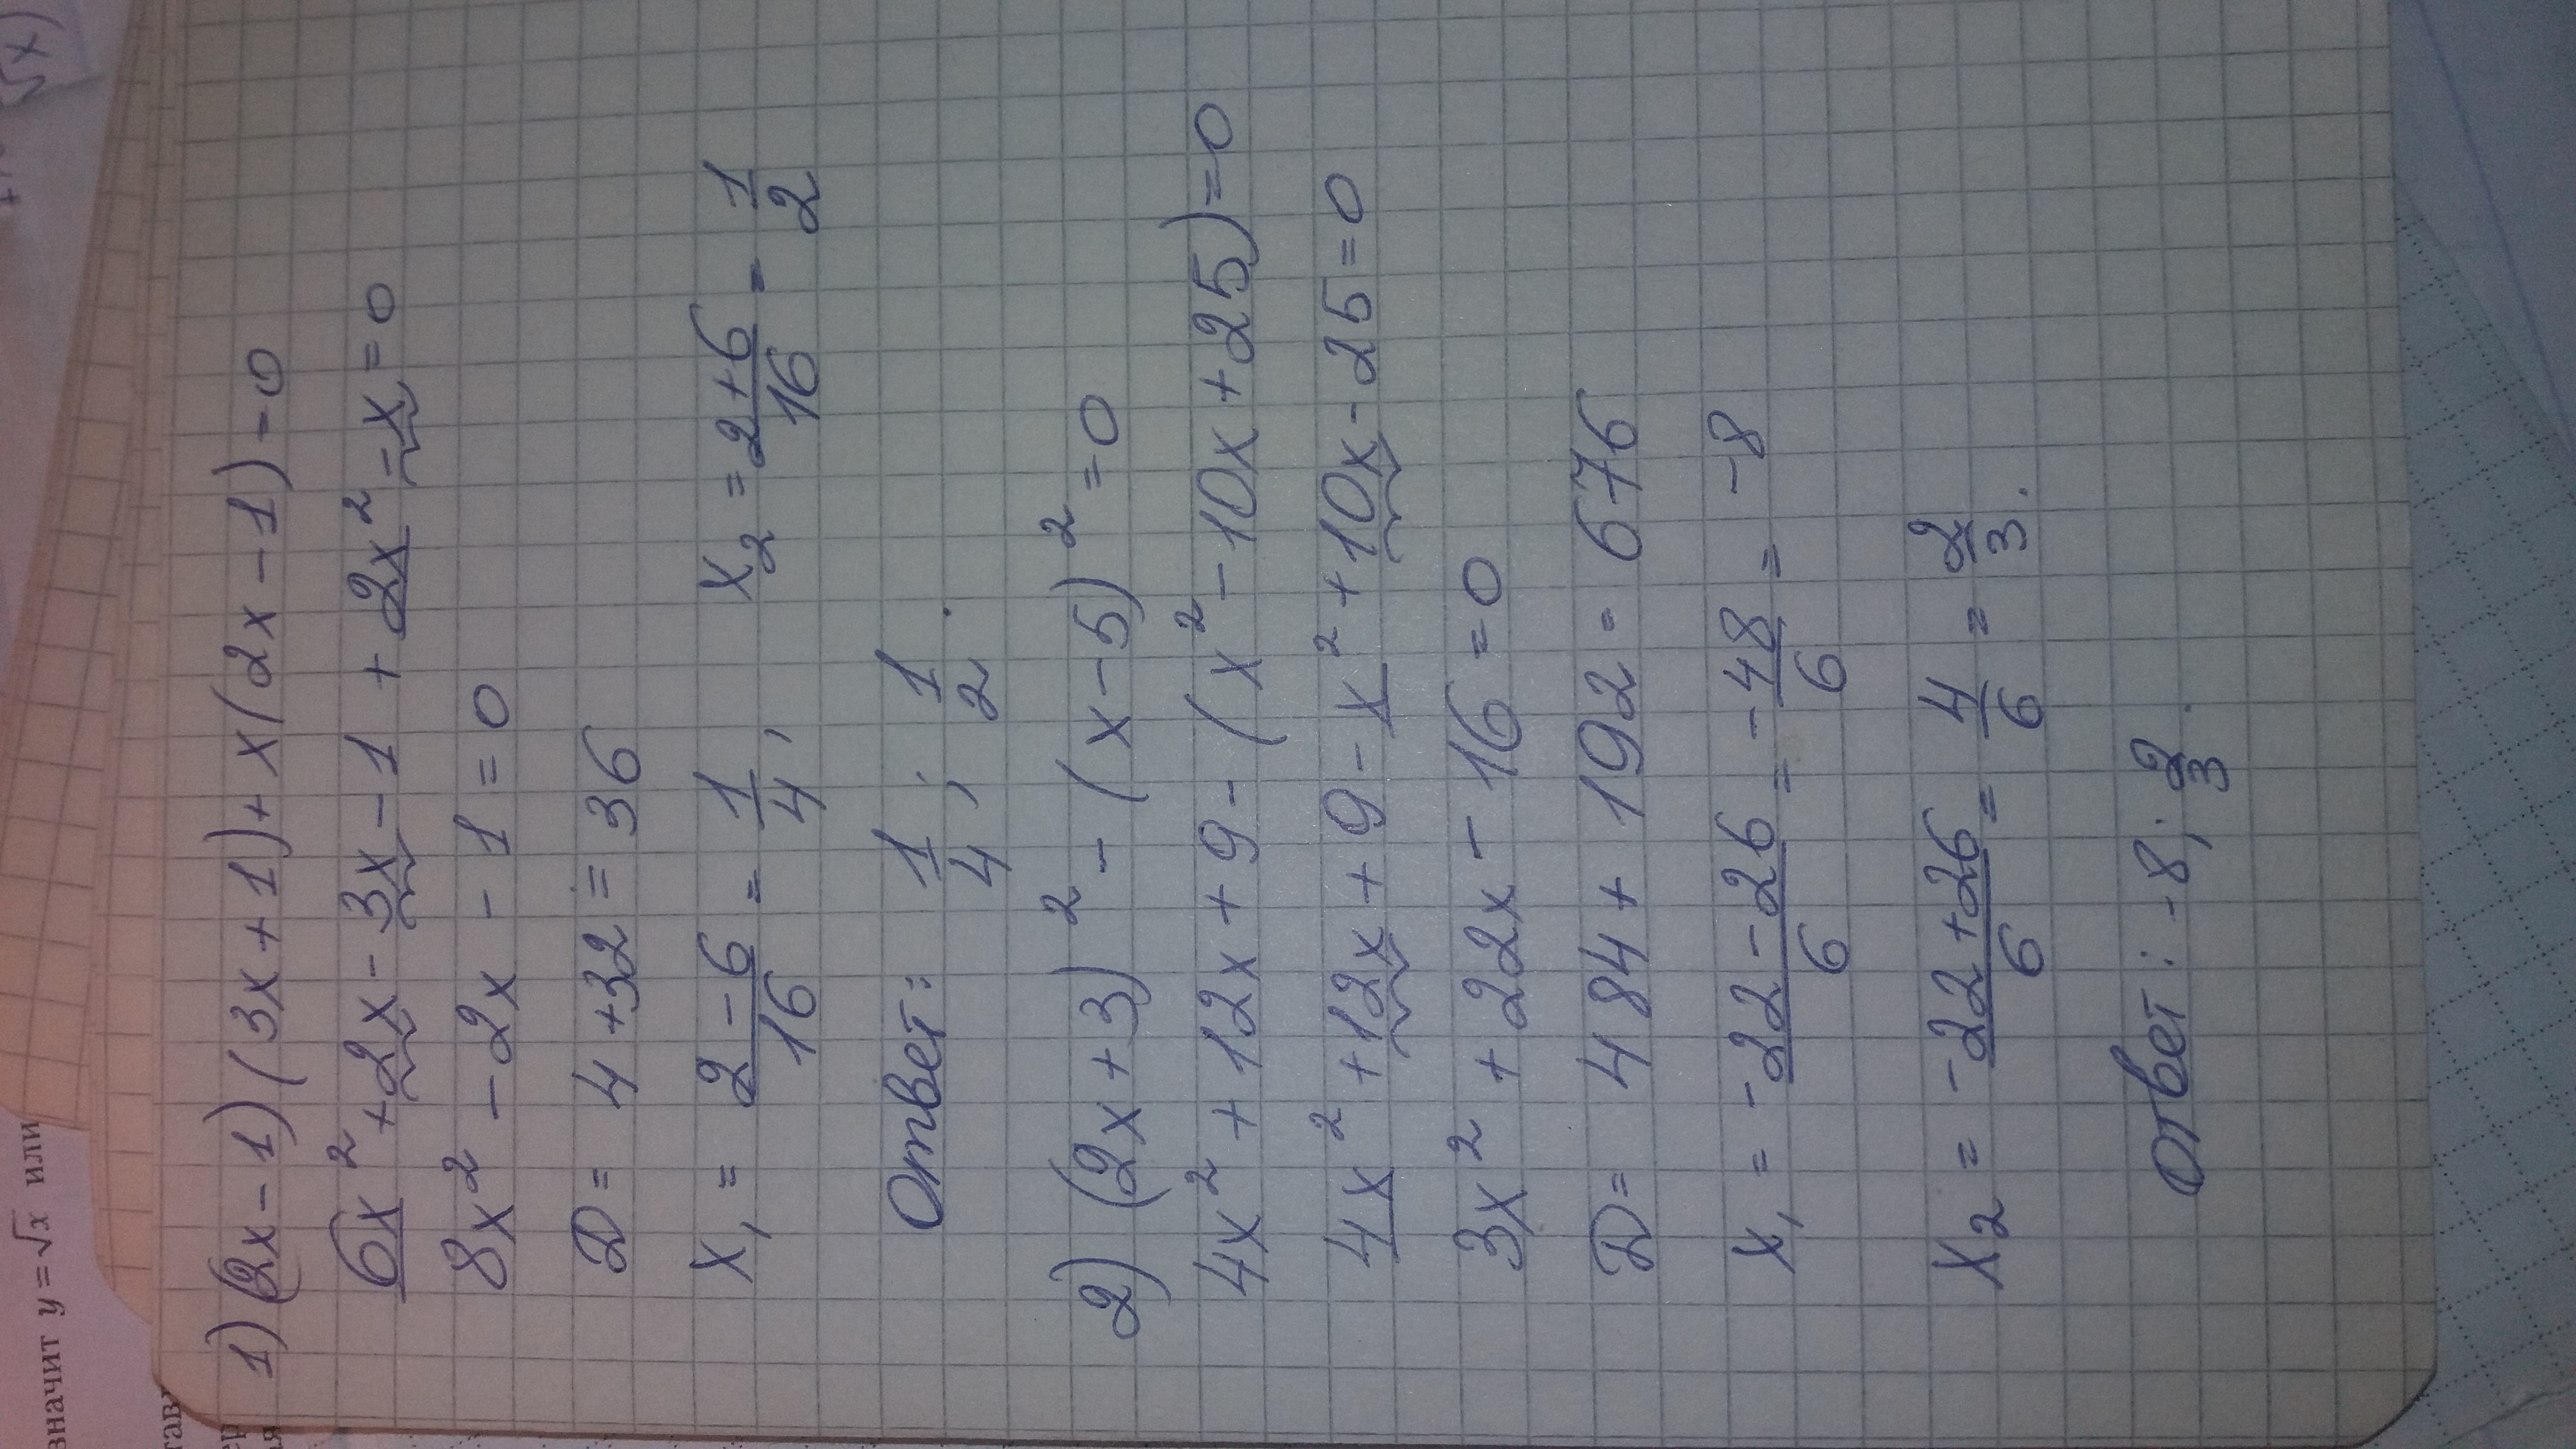 1) (2x-1)(3x+1)+x(2x-1)=0
6x²+2x-3x-1+2x²-x=0
8x²-2x-1=0
D=4+32=36
x₁=(2-6)/16=1/4; x₂=(2+6)/16=1/2
Ответ: 1/4; 1/2.
2) (2x+3)²-(x-5)²=0
4x²+12x+9-(x²-10x+25)=0
4x²+12x+9-x²+10x-25=0
3x²+22x-16=0
D=484+192=676
x₁=(-22-26)/6=-48/6=-8
x₂=(-22+26)/6=4/6=2/3.
Ответ: -8; 2/3.
значит y=√x или
√x)